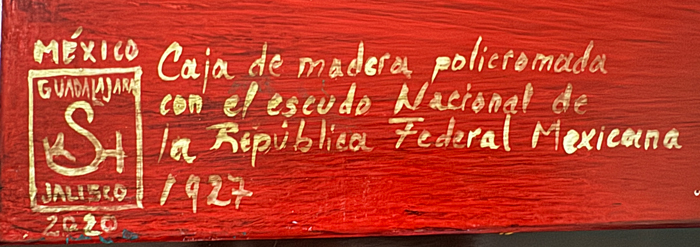 MÉXICO
GUADALAJARA
JALISCO
2020
Caja de madera policromada
con el escudo Nacional de
la República Federal Mexicana
1927